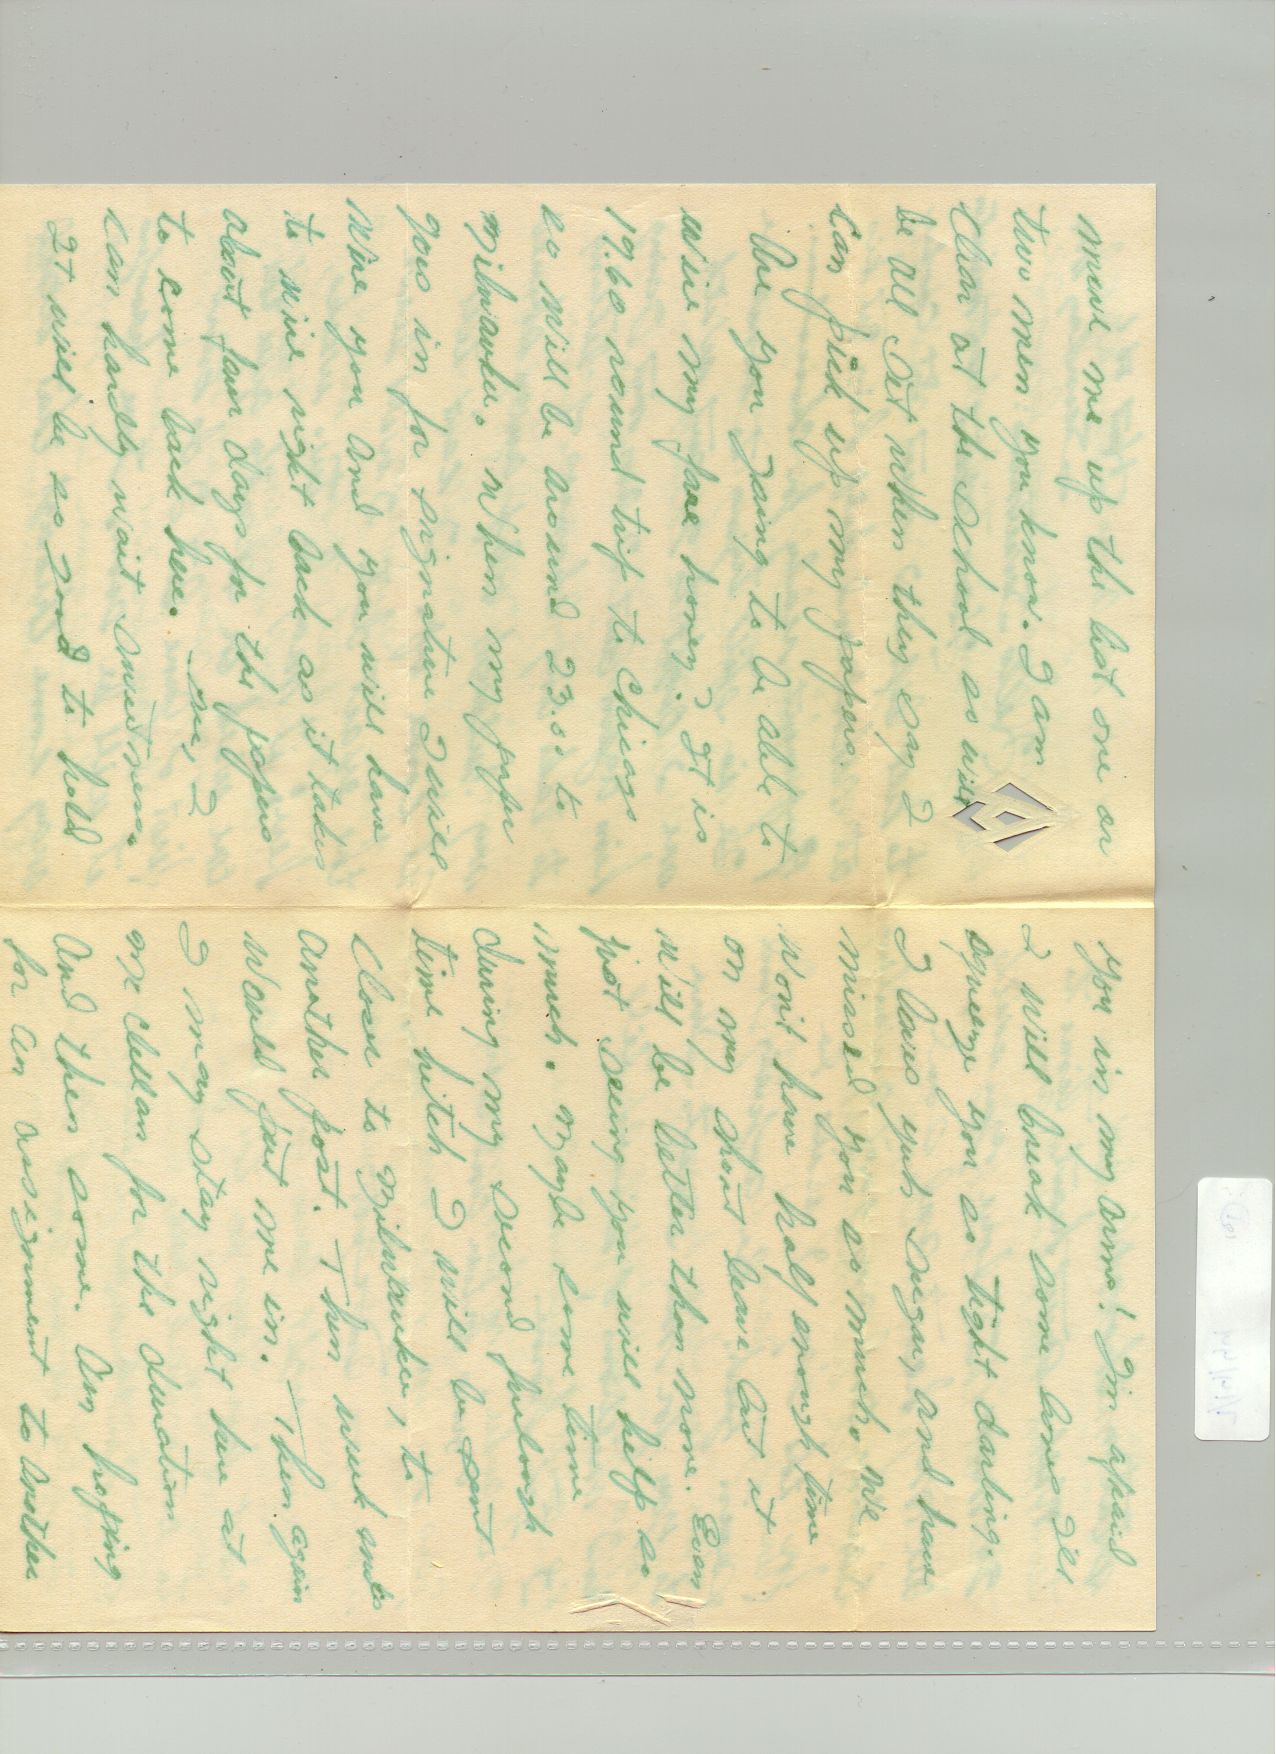 move me up the list one or
two men you know. I am
clear at the school so will
be all set when they say I
can pick up my papers.
Are you going to be able to
wire my fare honey? It is
19.60 round trip to Chicago
so will be around 23.00 to
Milwaukee. When my paper
goes in for signature I will
wire you and you will have
to wire right back as it takes
about four days for the papers
to come back here. I
can hardly wait sweetness.
It will be so good to hold
you in my arms! I'm afraid
I will break some bones I'll
squeeze you so tight darling.
I love you sugar, and have
missed you so much. We
won't have half enough time
on my short leave but it
will be better than none. Even
just seeing you will help so
much. Maybe some time
during my second furlough
time hitch I will be sent
closer to Milwaukee, to
another post.
would put me in. Then again
I may stay right here at
McClellan for the duration
and then some. Am hoping
for an assignment to another